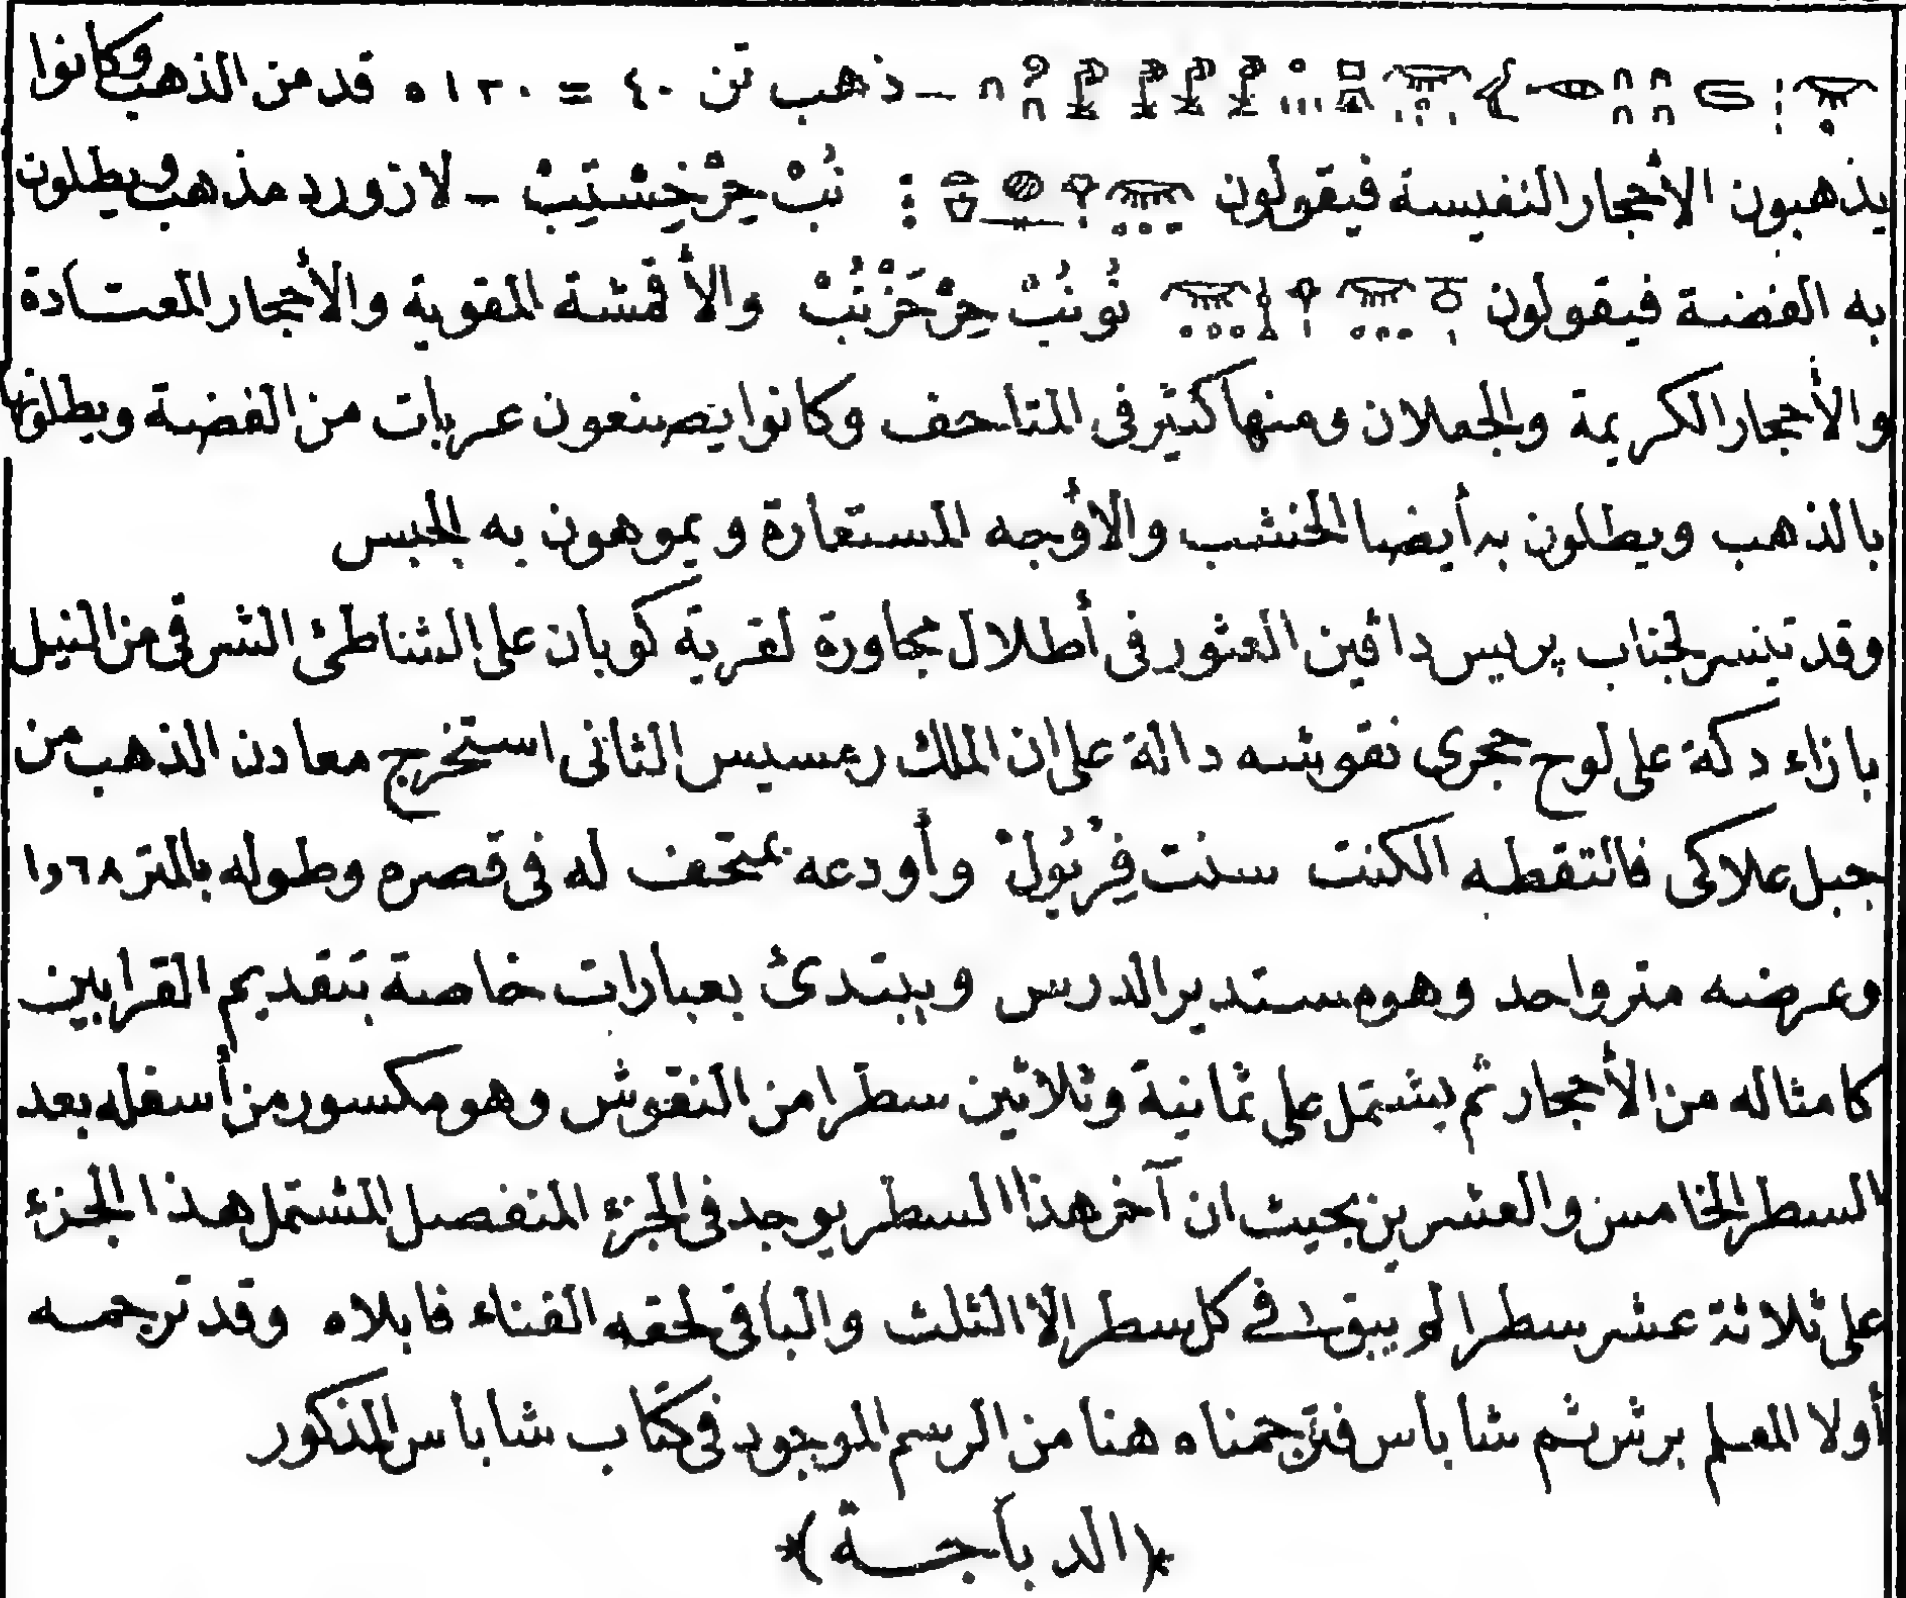 ـ ذهب تن ٤٠ = ٥١٢٠ قد من الذهب وكانوا
يذهبون الأحجار النفيسة فيقولون : نُبْ حِرْ خِسْتِيبْ ـ لازورد مذهب ويطلون
به الفضة فيقولون نُونُبْ حِرْ حَزْنُبْ والأقمشة المقوية والأحجار المعتادة
والأحجار الكريمة والجعلان ومنها كثير فى المتاحف وكانوا يصنعون عربات من الفضة ويطلونها
بالذهب ويطلون به أيضا الخشب والأوجه المستعارة ويموهون به الجبس
وقد تيسر لجناب پريس داڤين العثور فى أطلال مجاورة لقرية كوبان على الشاطئ الشرقى من النيل
بازاء دكة على لوح حجرى نقوشه دالة على ان الملك رعمسيس الثانى استخرج معادن الذهب من
جبل علاكى فالتقطه الكنت سنت فِرْيُولْ وأودعه بمتحف له فى قصره وطوله بالمتر ٦٨و١
وعرضه متر واحد وهو مستدير الدرس ويبتدئ بعبارات خاصة بتقديم القرابين
كامثاله من الأحجار ثم يشتمل على ثمانية وثلاثين سطرا من النقوش وهو مكسور من أسفله بعد
السطر الخامس والعشرين بحيث ان آخر هذا السطر يوجد فى الجزء المنفصل المشتمل هذا الجزء
على ثلاثة عشر سطرا لم يبق فى كل سطر الا الثلث والباقى لحقه الفناء فابلاه وقد ترجمه
أولا المعلم برش ثم شاباس فترجمناه هنا من الرسم الموجود فى كتاب شاباس المذكور
*(الديباجة)*